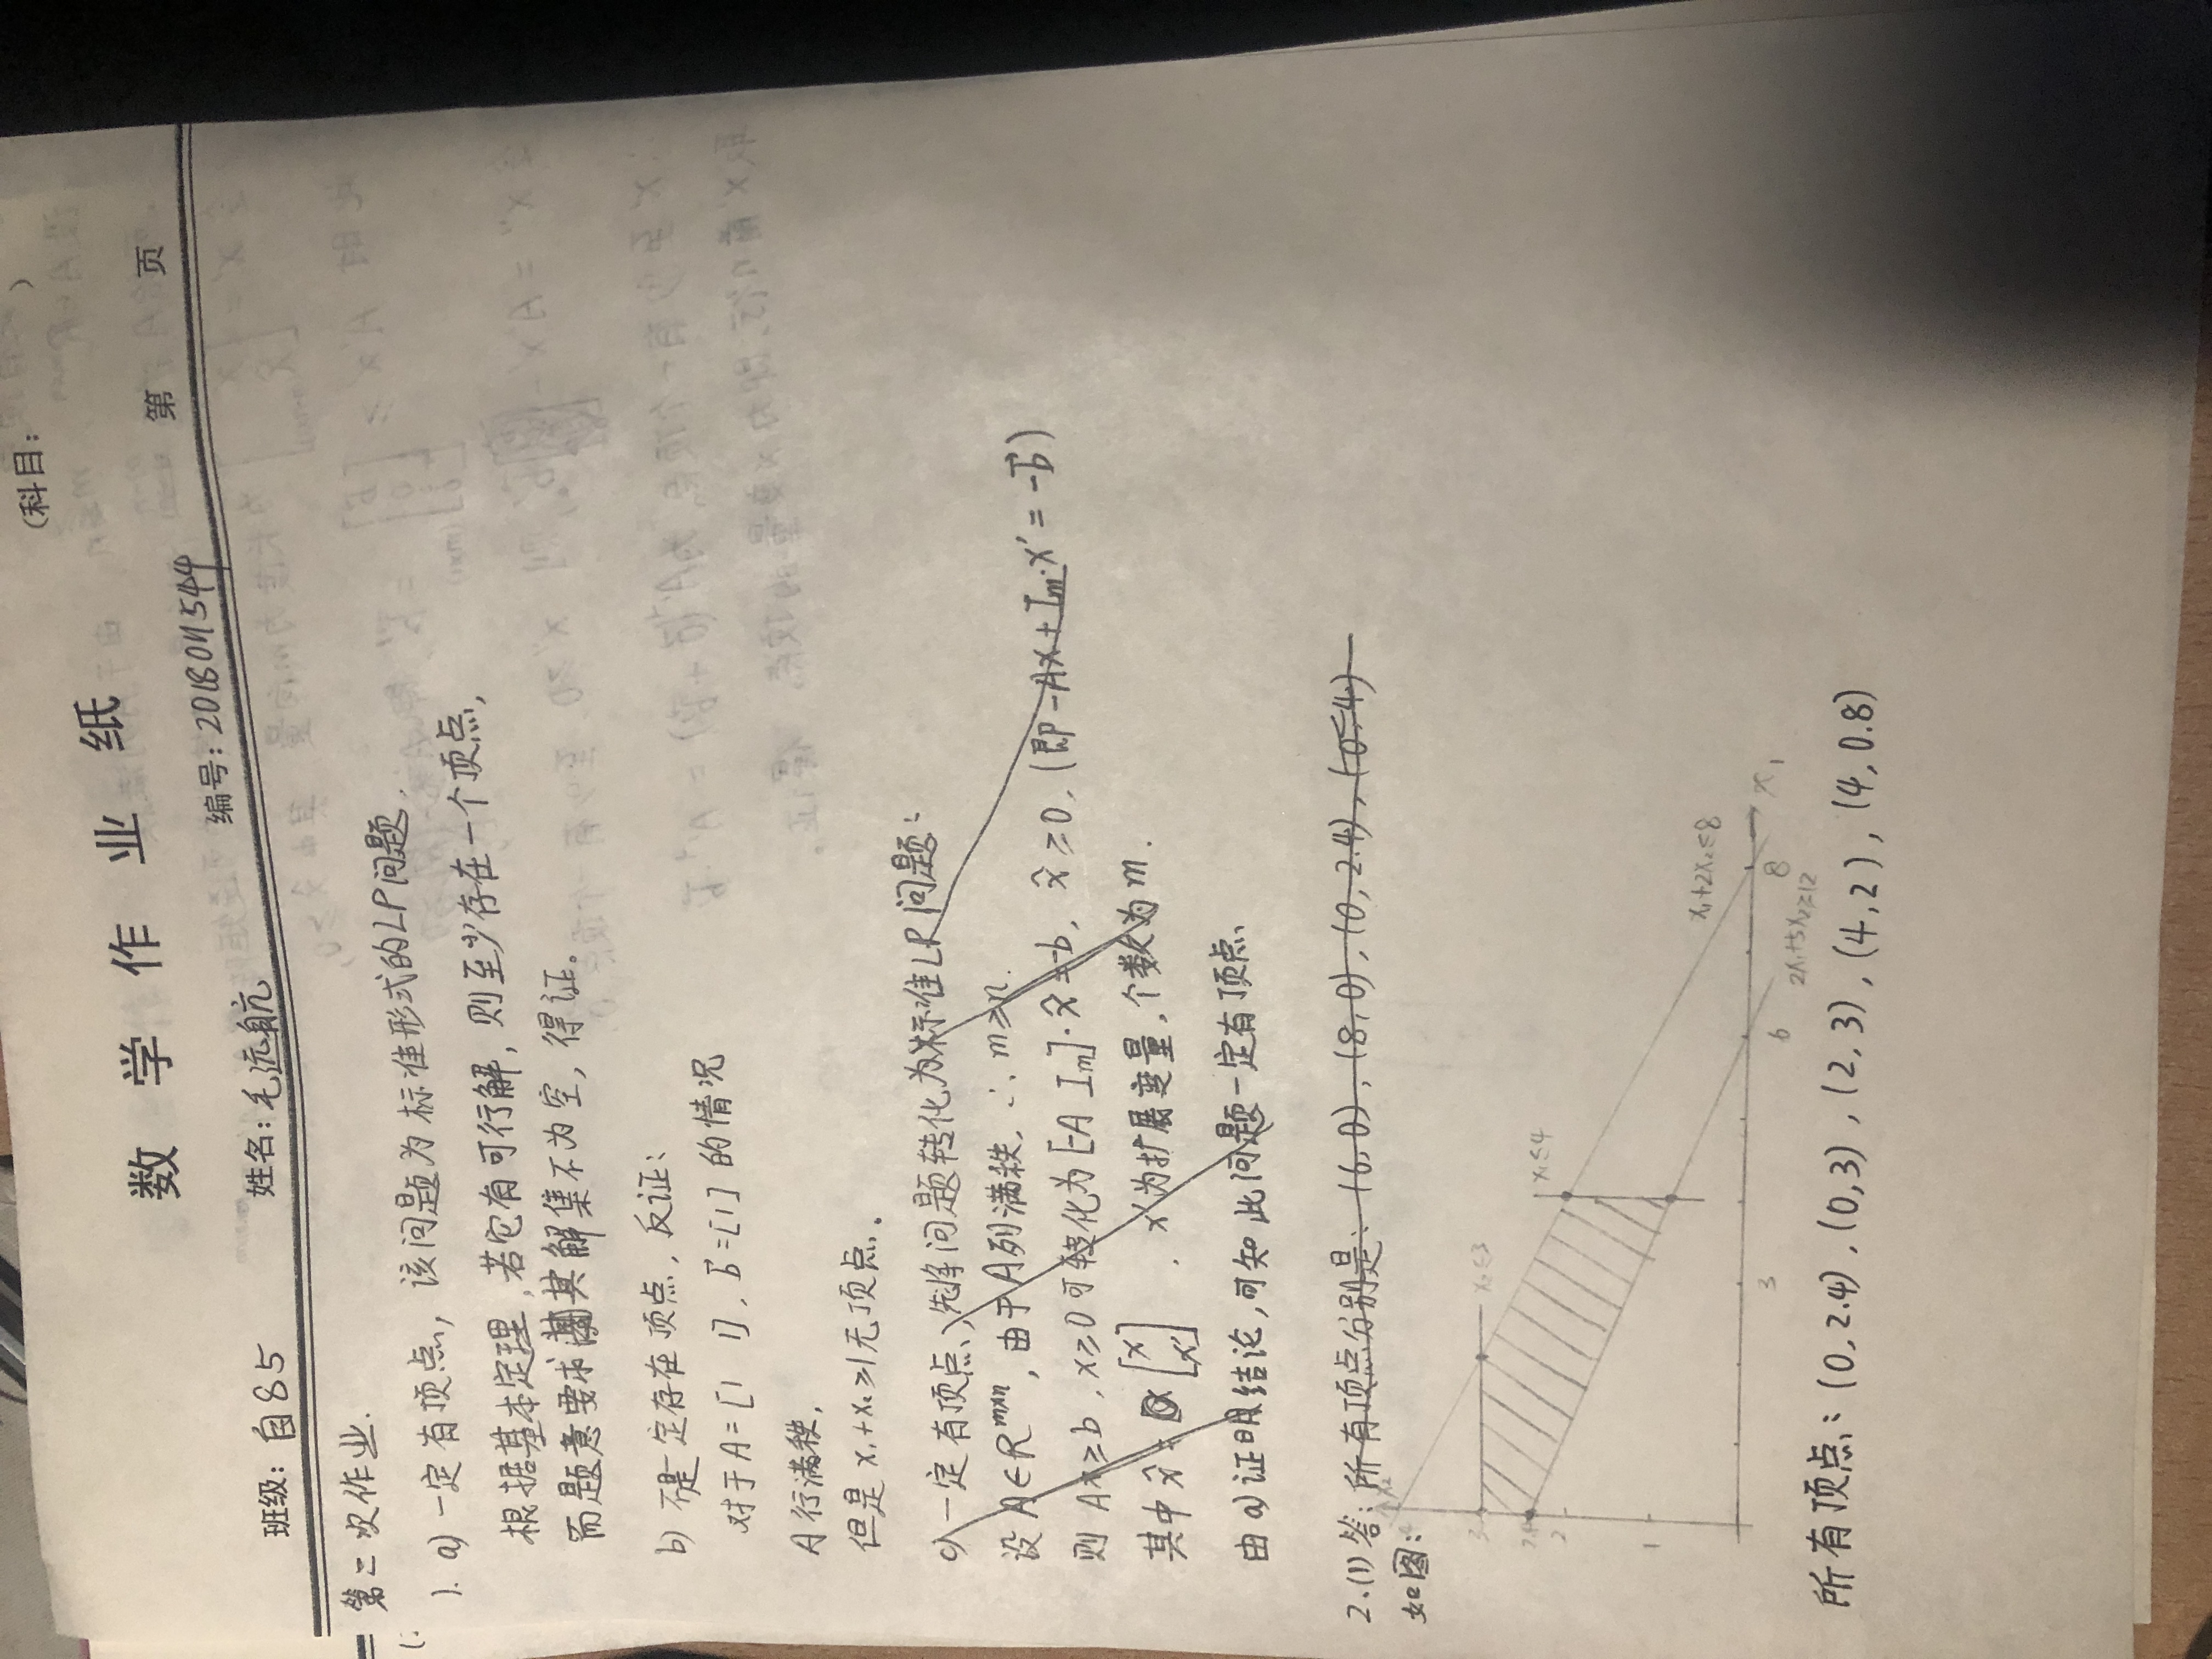 (科目: )
数 学 作 业 纸
第 页
班级: 自85 姓名: 毛远航 编号: 2018011544
第二次作业.
1. a) 一定有顶点, 该问题为标准形式的LP问题.
根据基本定理, 若它有可行解, 则至少存在一个顶点,
而题意要求其解集不为空, 得证。
b) 不是一定存在顶点, 反证:
对于A=[1 1], b⃗=[1] 的情况
A行满秩,
但是 x₁+x₂≥1无顶点.
c) 一定有顶点, 先将问题转化为标准LP问题:
设 A∈R^{m×n}, 由于A列满秩, ∴ m≥n.
则 Ax≥b, x≥0 可转化为 [-A I_m]·x̂=-b, x̂≥0, (即 -Ax+I_m·x'=-b⃗)
其中 x̂= [x x'] . x'为扩展变量, 个数为m.
由a)证明结论, 可知此问题一定有顶点
2.(1) 答: 所有顶点分别是: (6,0), (8,0), (0,2.4), (0,4)
如图:
x₂
4
3
x₂≤3
2.4
x₁≤4
2
1
x₁+2x₂≤8
3
6
8
x₁
2x₁+5x₂≥12
所有顶点: (0,2.4), (0,3), (2,3), (4,2), (4,0.8)